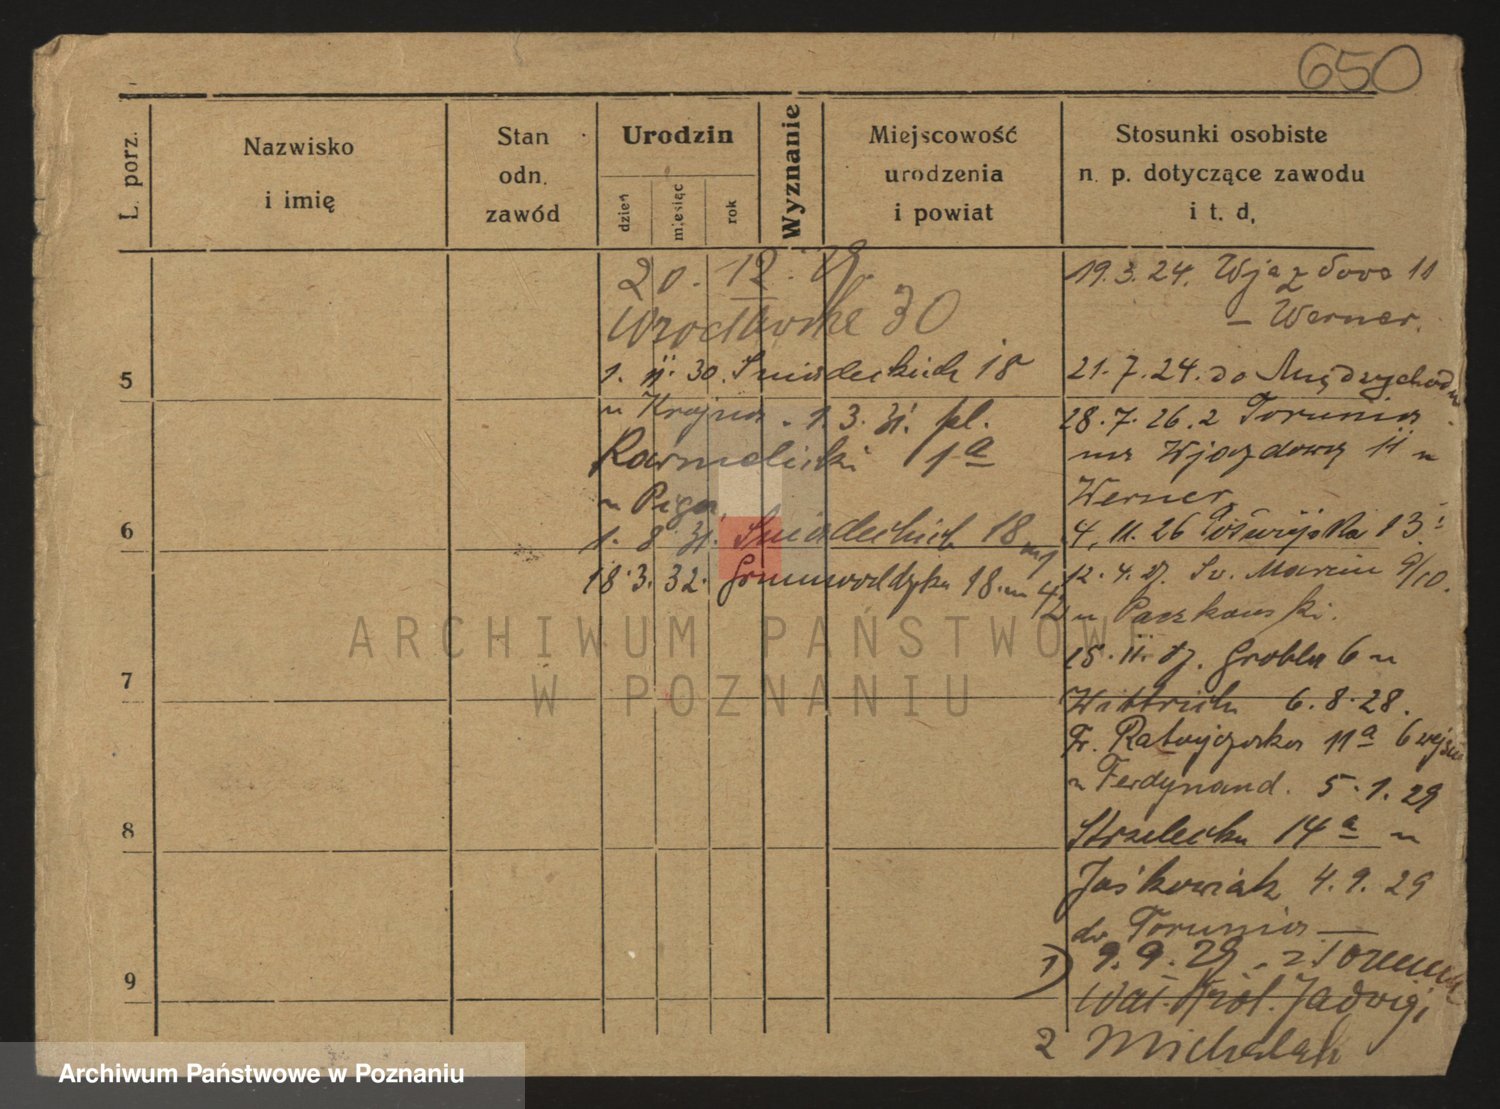 650
L. porz.
Nazwisko
i imię
Stan
odn.
zawód
Urodzin
dzień
miesiąc
rok
Wyznanie
Miejscowość
urodzenia
i powiat
Stosunki osobiste
n. p. dotyczące zawodu
i t. d.
20. 12. 29.
Wrocławska 30
1. 11. 30. Śniadeckich 18
u Krajna. 1. 3. 31. pl.
Karmelicki 1a
u
1. 8. 31. Śniadeckich 18
18. 3. 32. Grunwaldzka 18. m 42
19. 3. 24. Wjazdowa 11
– Werner.
21. 7. 24. do Międzychodu
28. 7. 26. z Torunia
na Wjazdową 11 u
Werner
4. 11. 26 13
12. 4. 27. Św. Marcin 9/10.
u Paczkowski.
15. 11. 27. Grobla 6 u
Wittrich 6. 8. 28.
Fr. Ratajczaka 11a 6 wejście
u Ferdynand. 5. 1. 29
Strzelecka 14a u
Jaśkowiak 4. 9. 29
do Torunia –
1) 9. 9. 29. z Torunia
Wał. Król. Jadwigi
2 Michalak
5
6
7
8
9
ARCHIWUM PAŃSTWOWE
W POZNANIU
Archiwum Państwowe w Poznaniu